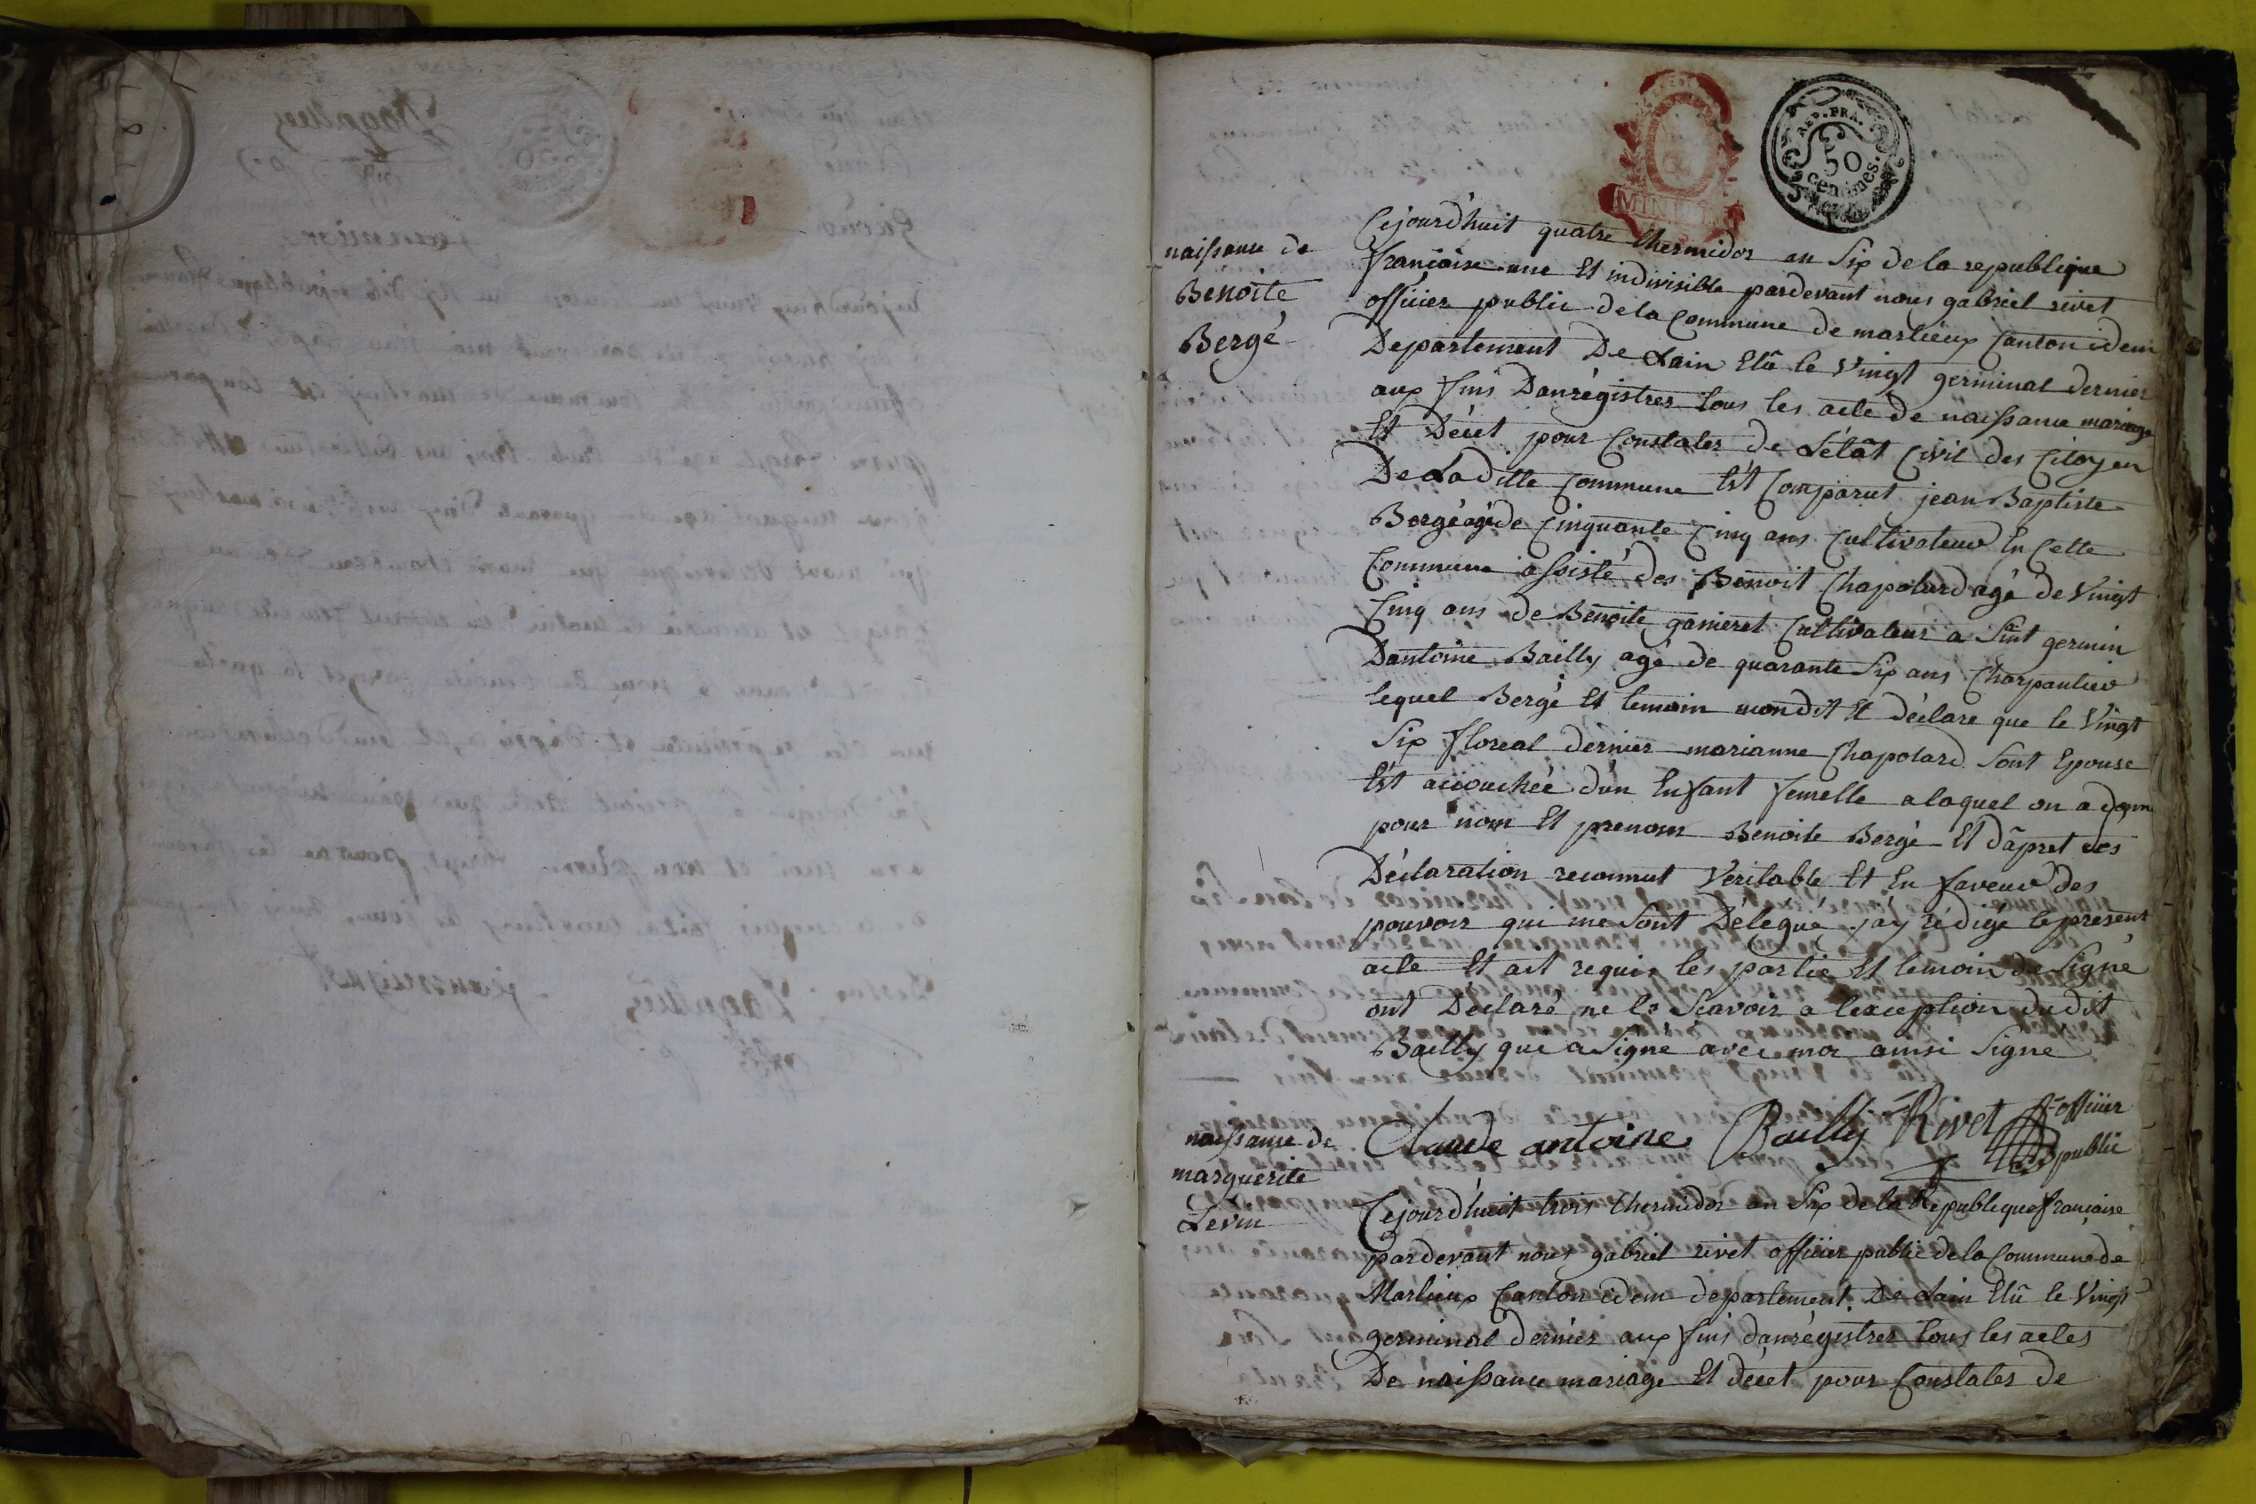 REP. FRA.
50
centimes.
naissance de
Benoite
Bergé
Cejourd'huit quatre thermidor an Six de la republique
francaise une Et indivisible pardevant nous gabriel rivet
officier public de la Commune de marlieux Canton idem
Departement De Lain Elû le Vingt germinal dernier
aux fins Danrégistrer tous les acte de naissance mariage
Et Décet pour Constater de Létât Civil des Citoyen
De Laditte Commune Est Comparut jean Baptiste
Bergé agé de Cinquante Cinq ans Cultivateur En Cette
Commune assisté des Benoit Chapolard agé de Vingt
Cinq ans de Benoite ganieret Cultivateur a Sint germin
Dantoine Bailly agé de quarante Six ans Charpantier
lequel Bergé Et temoin mondit Et déclare que le Vingt
Six floreal dernier marianne Chapolard Sont Epouse
Est accouchée d'un Enfant femelle a laquel on a donn
pour nom Et prenom Benoite Bergé Et dâpret ces
Déclaration reconnut Veritable Et En faveur des
pouvoir qui me Sont Délegué j'ay rédigé le present
acte Et ait requis les partie Et temoin de Signé
ont Déclaré ne le Scavoir a lexception dudit
Bailly qui a Signé avec moi ainsi Signé
Claude antoine Bailly Rivet officier
public
naissance de
marguerite
Levin
Cejourd'huit trois thermidor an Six de la Republique francaise
pardevant nous gabriel rivet officier public de la Commune de
Marlieux Canton idem departement De Lain Elû le Vingt
germinal dernier aux fins danrégistrer tous les actes
De naissance mariage Et décet pour Constater de